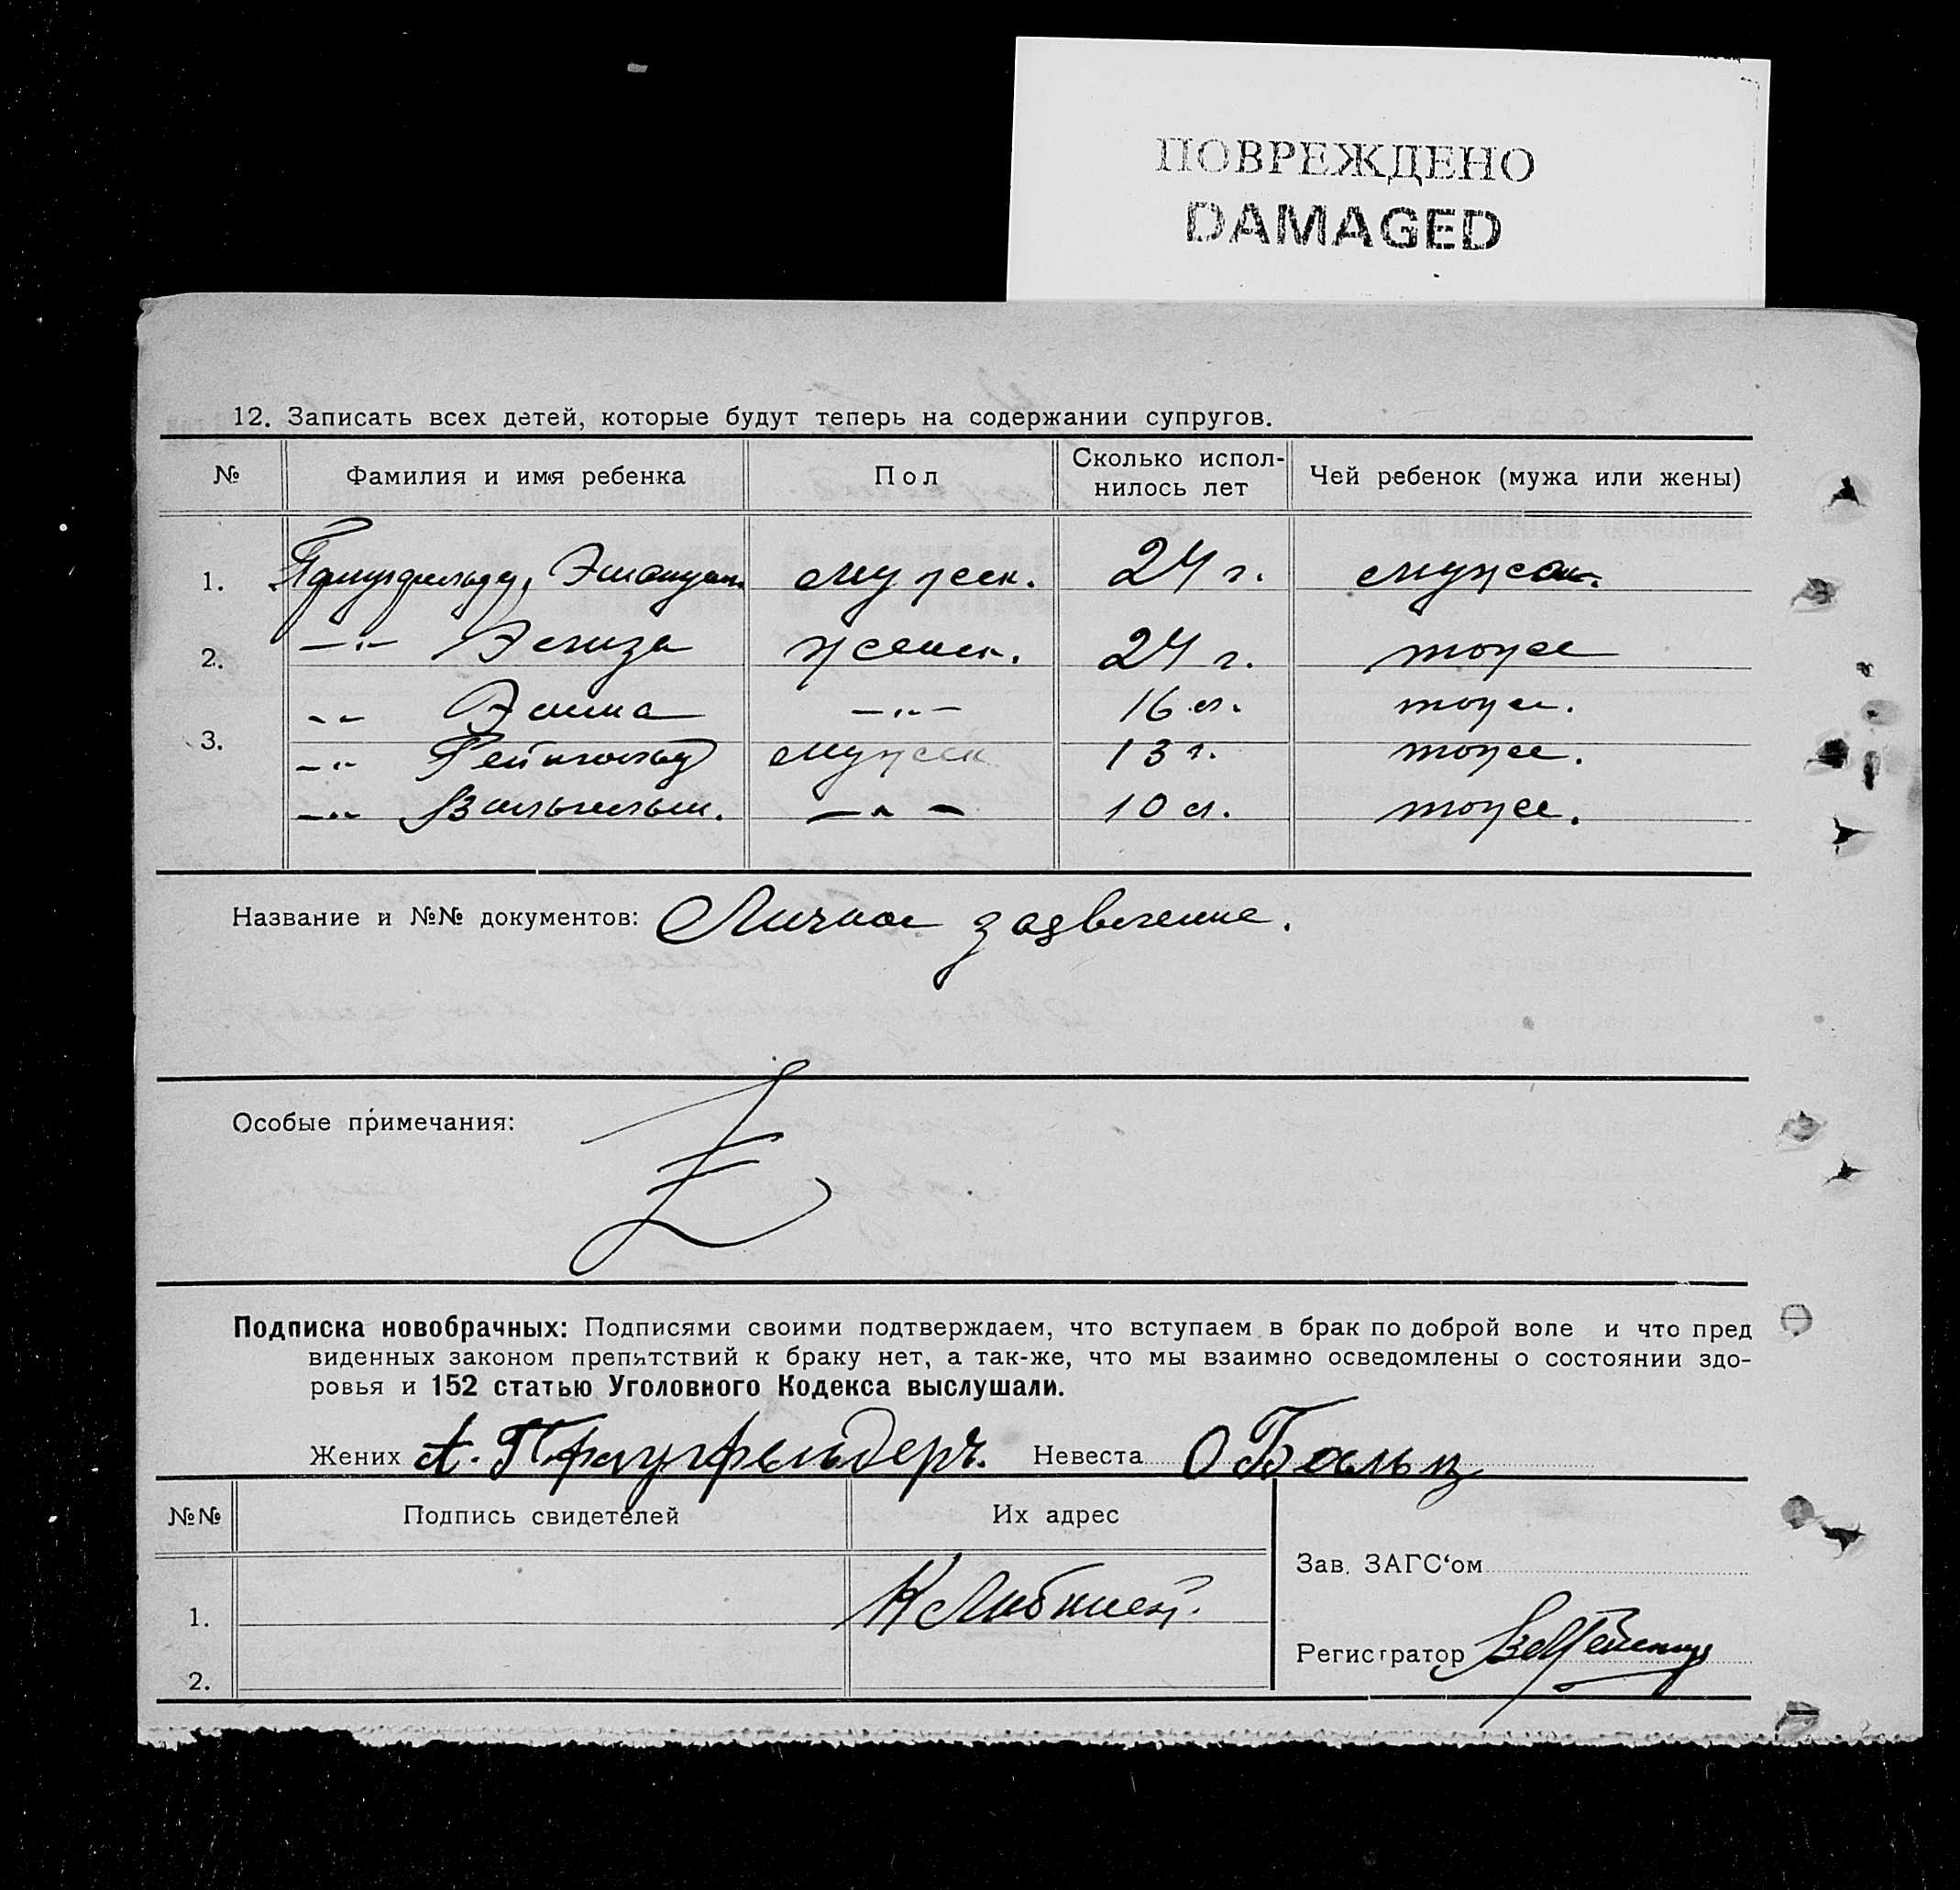 ПОВРЕЖДЕНО
DAMAGED
12. Записать всех детей, которые будут теперь на содержании супругов.
№ Фамилия и имя ребенка Пол Сколько исполнилось лет Чей ребенок (мужа или жены)
1. Эмануил мужск. 24 г. мужа.
2. —"— Эльза женск. 24 г. тоже
-"- Эмма —"— 16 л. тоже.
3. —"- Рейнгольд мужск 13 г. тоже.
—"- Вильгельм. —"— 10 л. тоже.
Название и №№ документов: Личное заявление.
Особые примечания:
Подписка новобрачных: Подписями своими подтверждаем, что вступаем в брак по доброй воле и что пред
виденных законом препятствий к браку нет, а так-же, что мы взаимно осведомлены о состоянии здо-
ровья и 152 статью Уголовного Кодекса выслушали.
Жених А. Пфаугфельдеръ. Невеста О Бальц
№№ Подпись свидетелей Их адрес
Зав. ЗАГС'ом
1. К Либкнехт.
Регистратор
2.